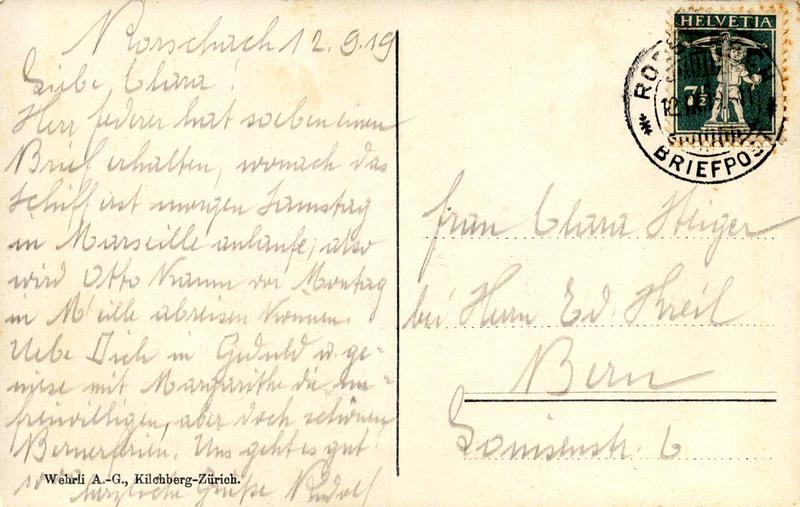 Rorschach 12.9.19
Liebe Clara!
Herr Federer hat soeben einen
Brief erhalten, wonach das
Schiff erst morgen Samstag
in Marseille anlaufe, also
wird Otto kaum vor Montag
in M'eille abreisen können.
Uebe Dich in Geduld u. ge-
niese mit Margarithe die un-
freiwilligen, aber doch schönen
Bernerferien. Uns geht es gut!
herzliche Grüsse Rudolf
Wehrli A.-G., Kilchberg-Zürich.
HELVETIA
7½
BRIEFPOST
Frau Clara Steiger
bei Herrn Ed. Streil
Bern
Louisenstr. 6